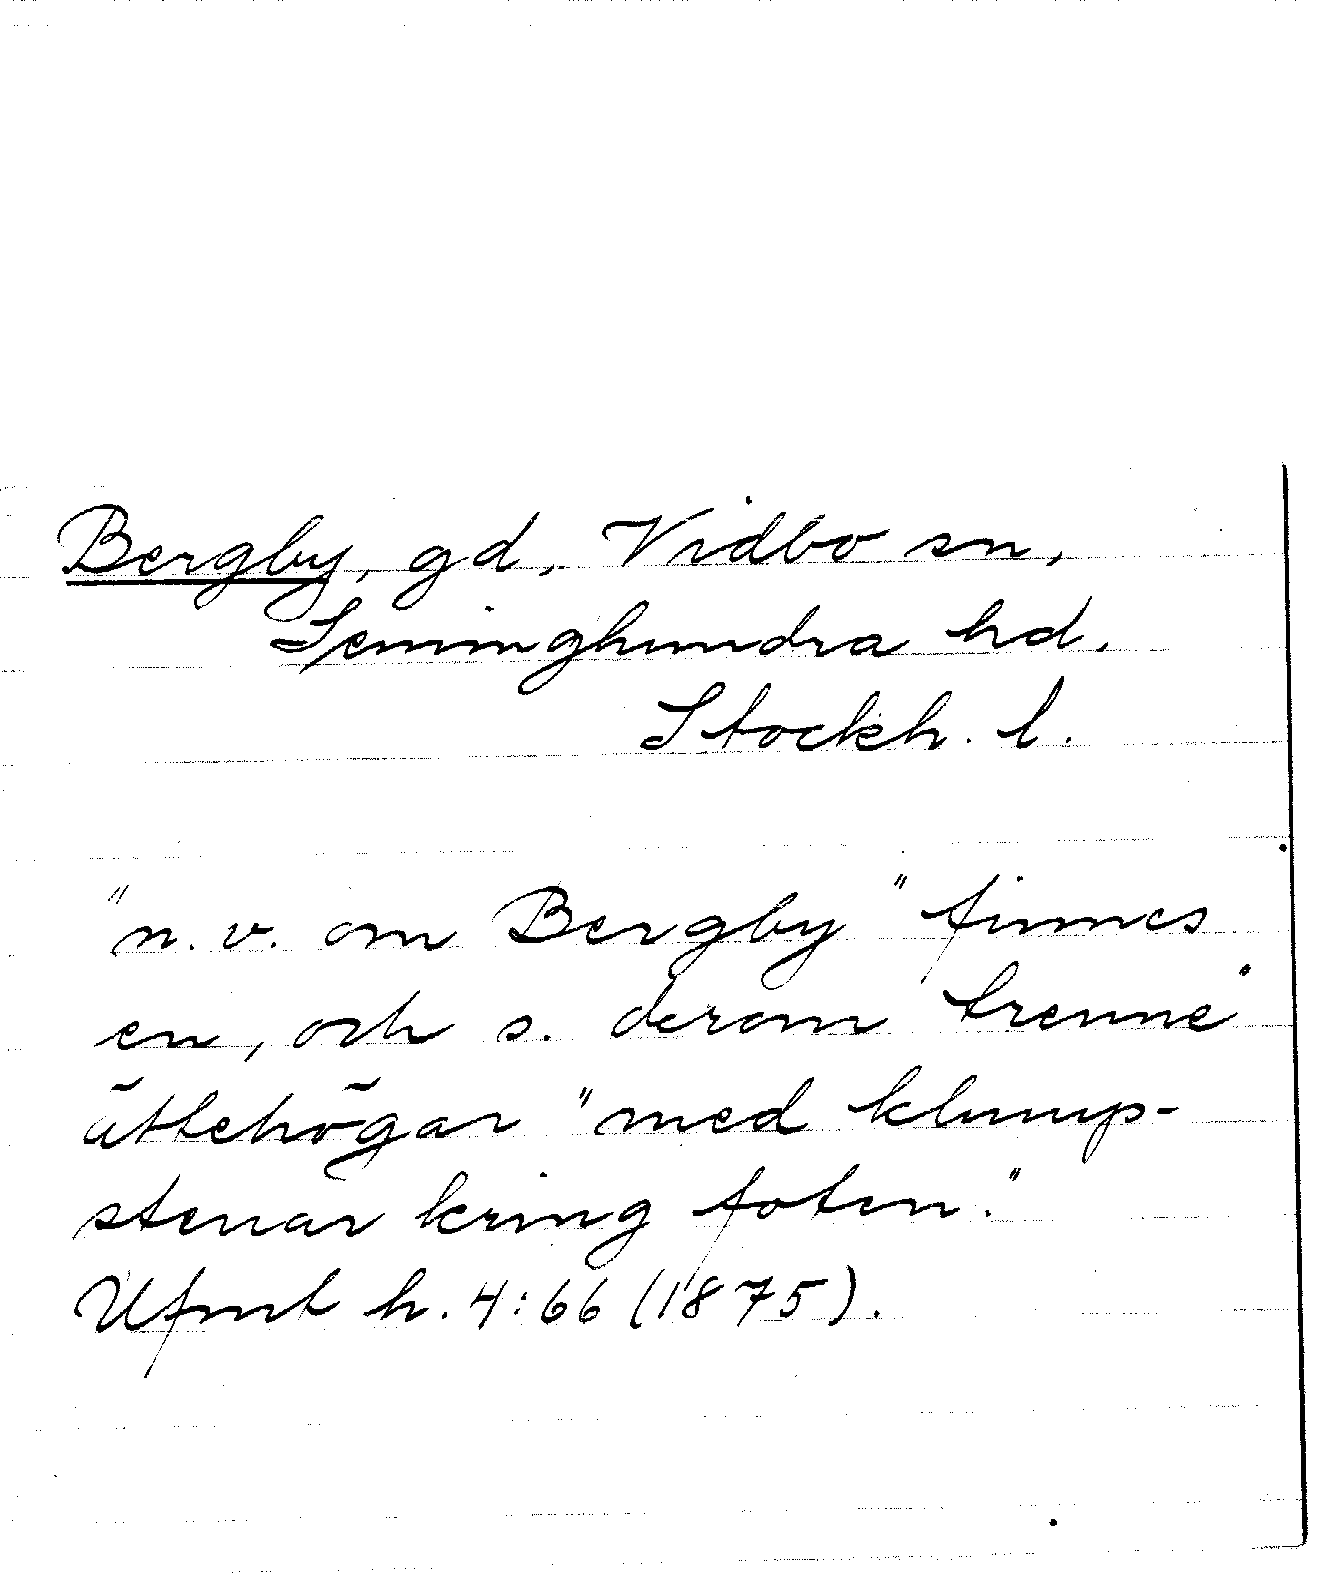 Bergby, gd, Vidbo sn,
Seminghundra hd.
Stockh. l.
"n.v. om Bergby" finnes
en, och s. derom trenne
ättehögar "med klump-
stenar kring foten."
Ufmt h. 4:66 (1875).